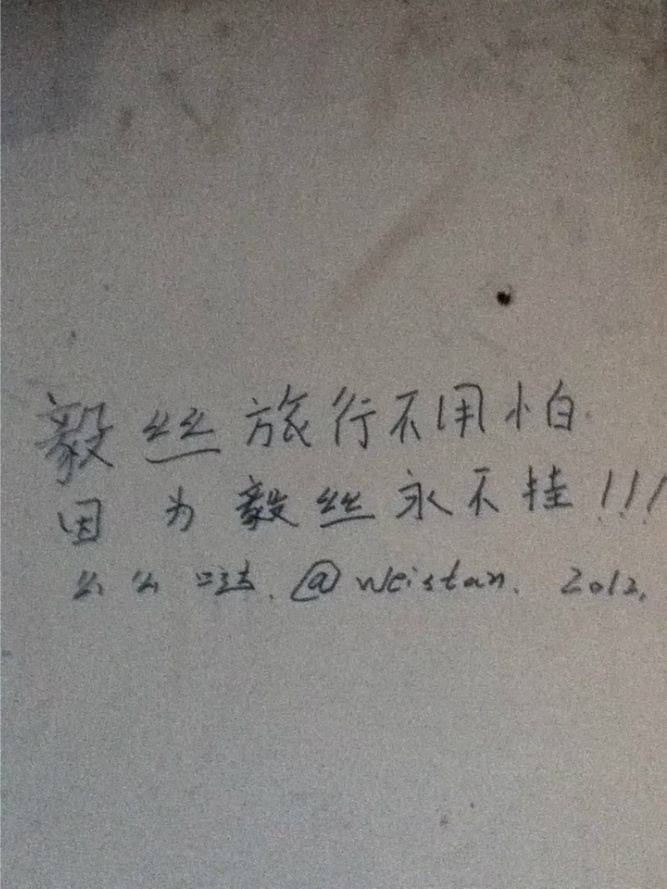 毅丝旅行不用怕
因为毅丝永不挂!!!
么么哒.@weistan. 2012.